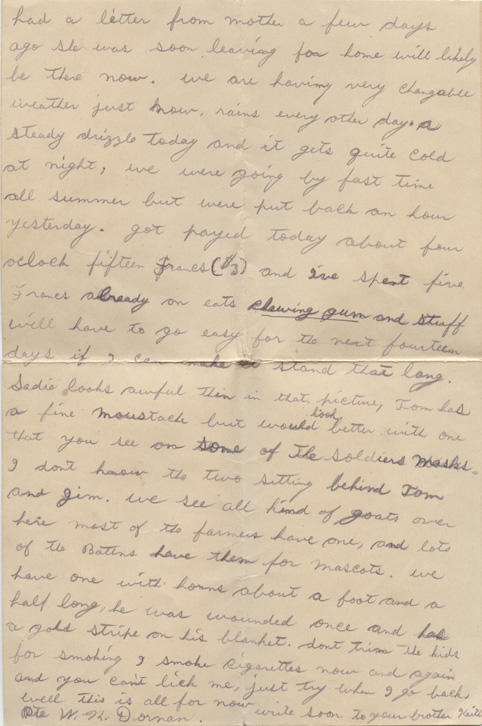 had a letter from mother a few days
ago she was soon leaving for home will likely
be there now. we are having very changable
weather just now, rains every other day. a
steady drizzle today and it gets quite cold
at night, we were going by fast time
all summer but were put back an hour
yesterday. got payed today about four
oclock fifteen francs ($3) and I've spent five
francs already on eats chewing gum and stuff
will have to go easy for the next fourteen
days if I can make it stand that long.
Sadie looks awful thin in that picture, Tom has
a fine moustache but would look better with one
that you see on some of the soldiers masks.
I dont know the two sitting behind Tom
and Jim. we see all kind of goats over
here most of the farmers have one, and lots
of the Battns have them for mascots. we
have one with horns about a foot and a
half long, he was wounded once and has
a gold stripe on his blanket. dont trim the kids
for smoking I smoke cigarettes now and again
and you can't lick me, just try when I go back,
well this is all for now write soon to your brother Keith
Pte W. K. Dornan.